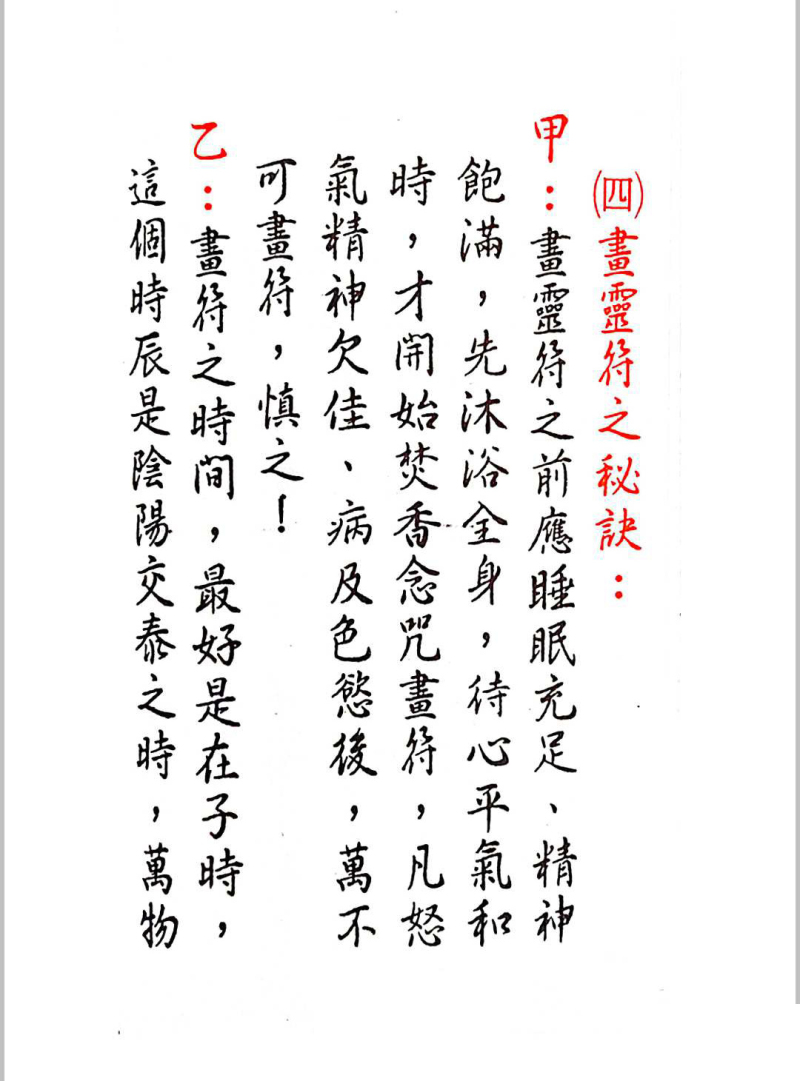 ㈣畫靈符之秘訣：
甲：畫靈符之前應睡眠充足、精神
飽滿，先沐浴全身，待心平氣和
時，才開始焚香念咒畫符，凡怒
氣精神欠佳、病及色慾後，萬不
可畫符，慎之！
乙：畫符之時間，最好是在子時，
這個時辰是陰陽交泰之時，萬物